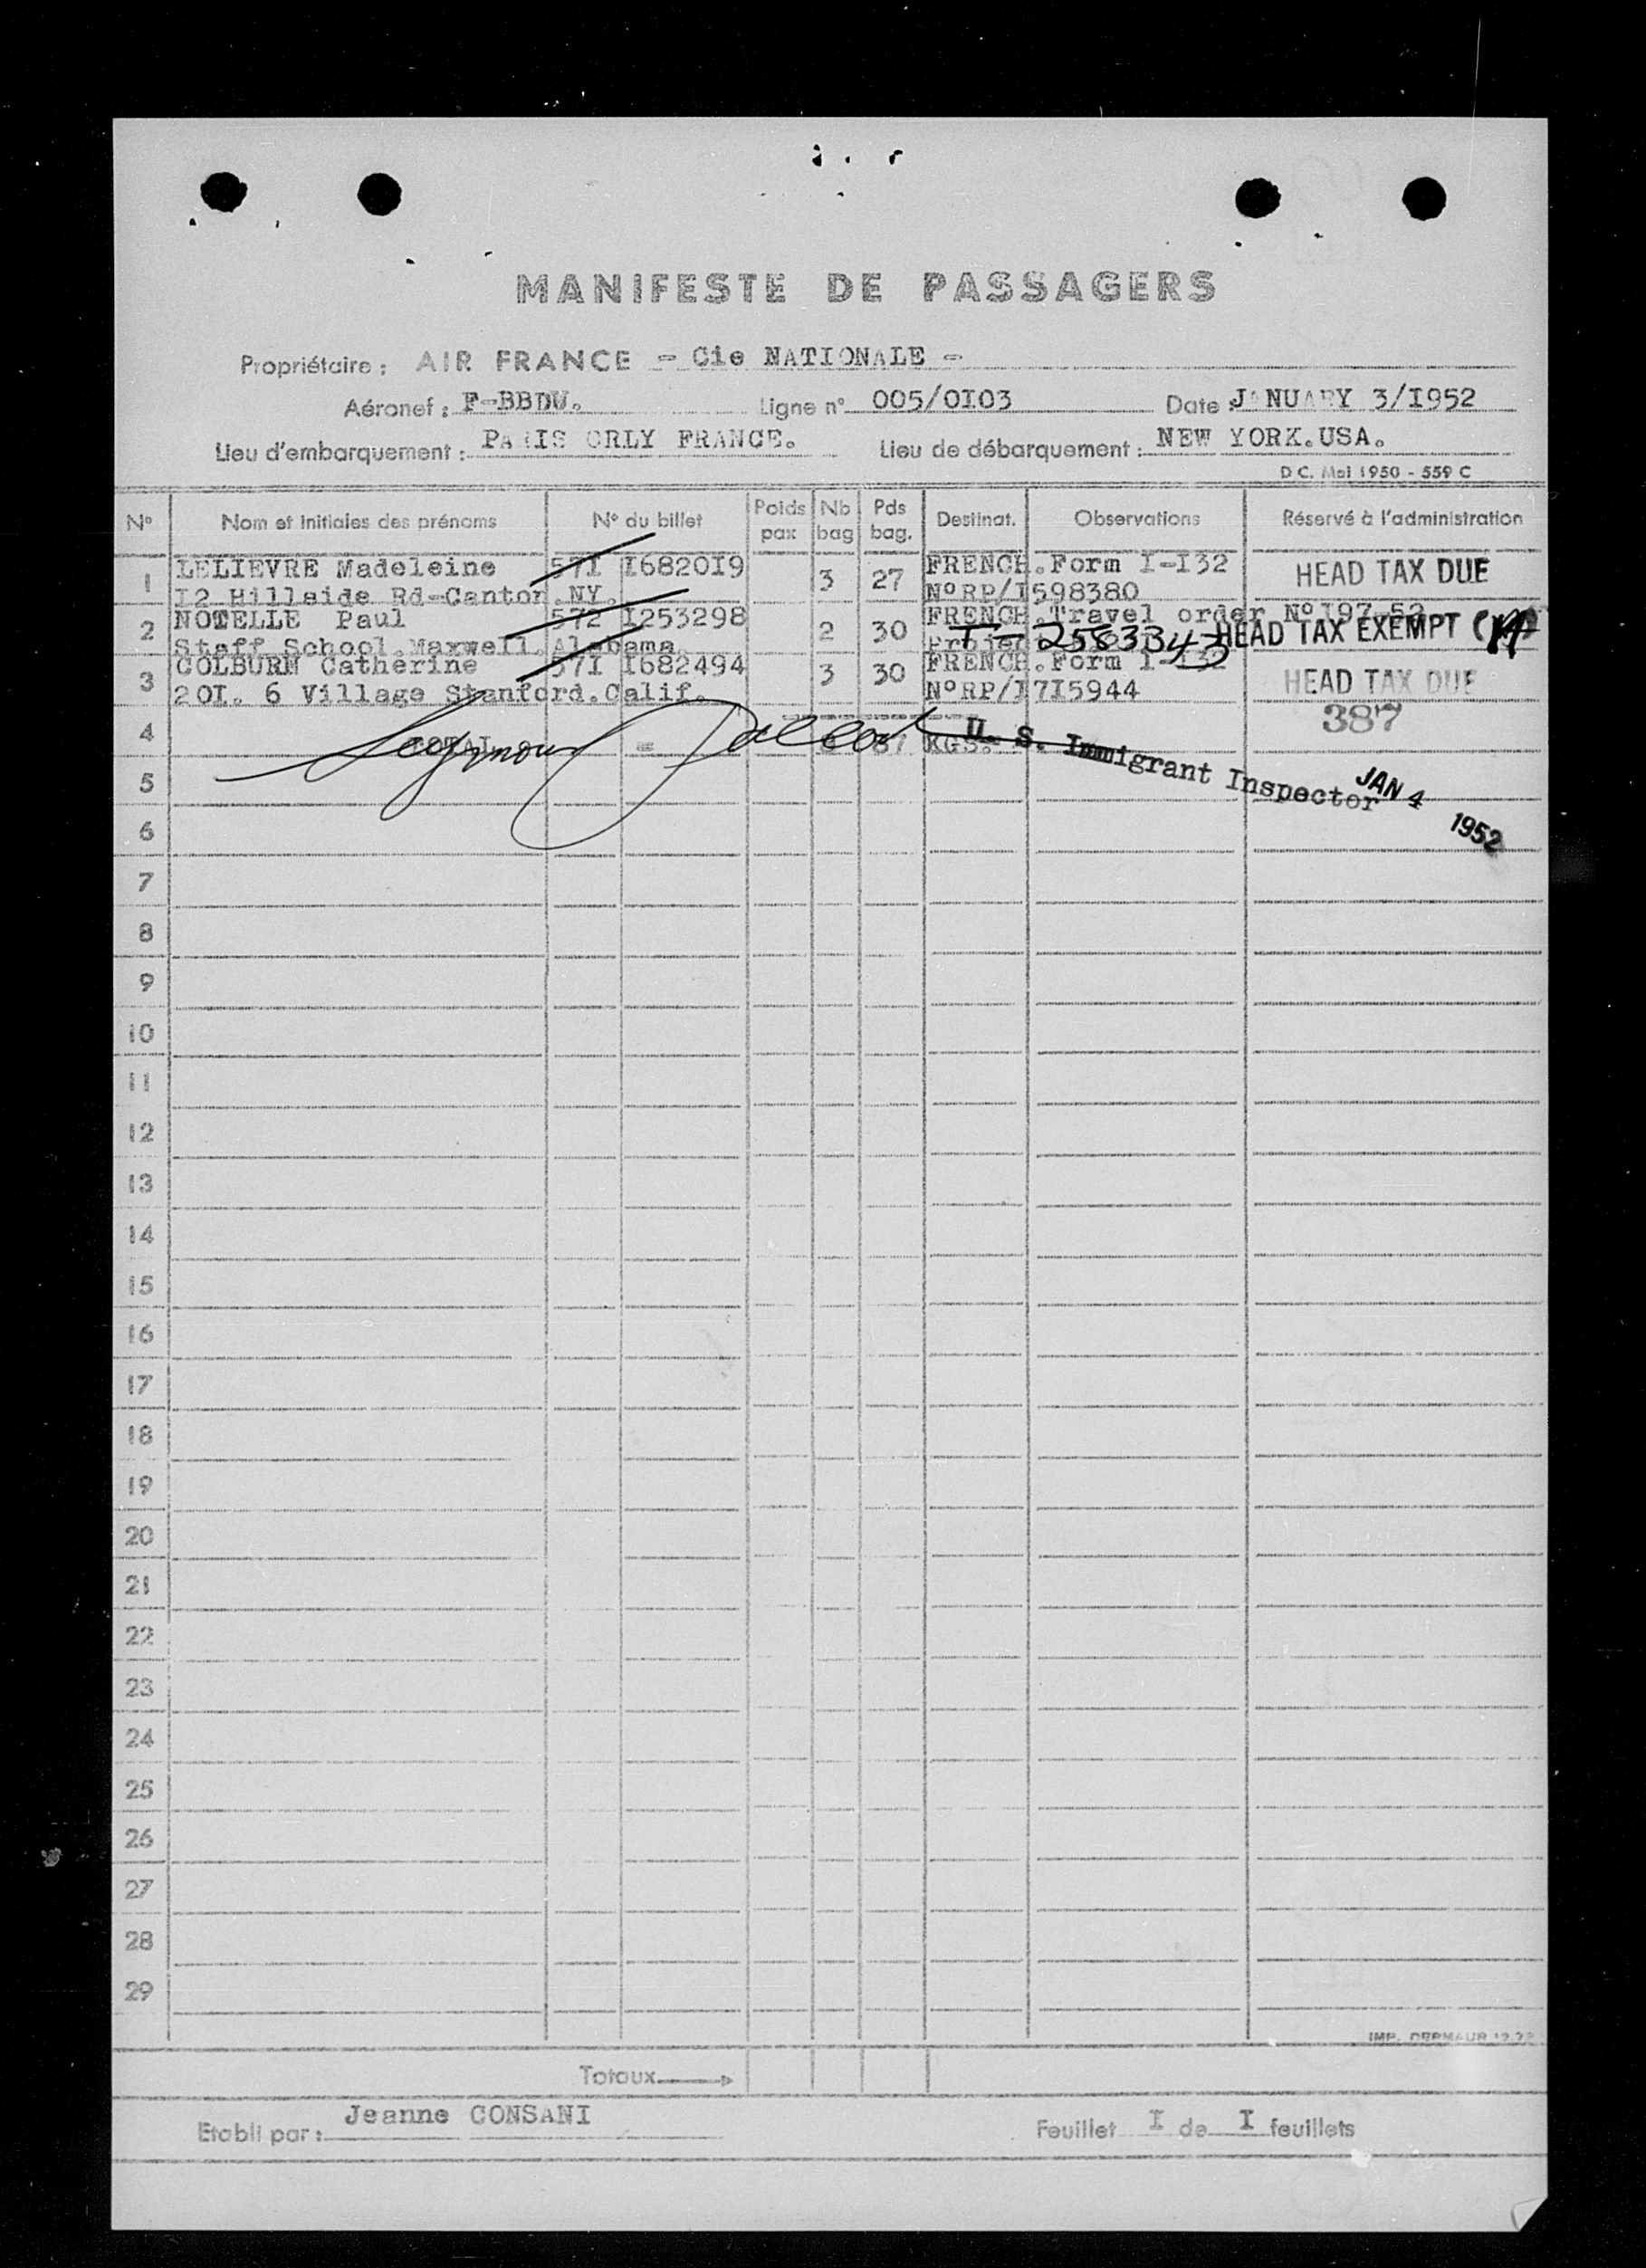 MANIFESTE DE PASSAGERS
Propriétaire : AIR FRANCE - Cie NATIONALE -
Aéronef : F-BBDU. Ligne n° 005/0I03 Date : JANUARY 3/I952
Lieu d'embarquement : PARIS ORLY FRANCE. Lieu de débarquement : NEW YORK.USA.
D C. Mai 1950 - 559 C
N° Nom et Initiales des prénoms N° du billet Poids pax Nb bag Pds bag. Destinat. Observations Réservé à l'administration
1 LELIEVRE Madeleine 57I I6820I9 3 27 FRENCH.Form I-I32 HEAD TAX DUE
I2 Hillside Rd-Canton.NY. N°RP/I598380
2 NOTELLE Paul 572 I253298 2 30 FRENCH Travel order N°I97-52
Staff School.Maxwell.Alabama HEAD TAX EXEMPT
3 COLBURN Catherine 57I I682494 3 30 FRENCH.Form I-I32 HEAD TAX DUE
20I. 6 Village Stanford.Calif. N°RP/I7I5944
387
4 TOTAL = 87 KGS.
U. S. Immigrant Inspector
JAN 4 1952
5
6
7
8
9
10
11
12
13
14
15
16
17
18
19
20
21
22
23
24
25
26
27
28
29
Totaux
Etabli par : Jeanne CONSANI Feuillet I de I feuillets